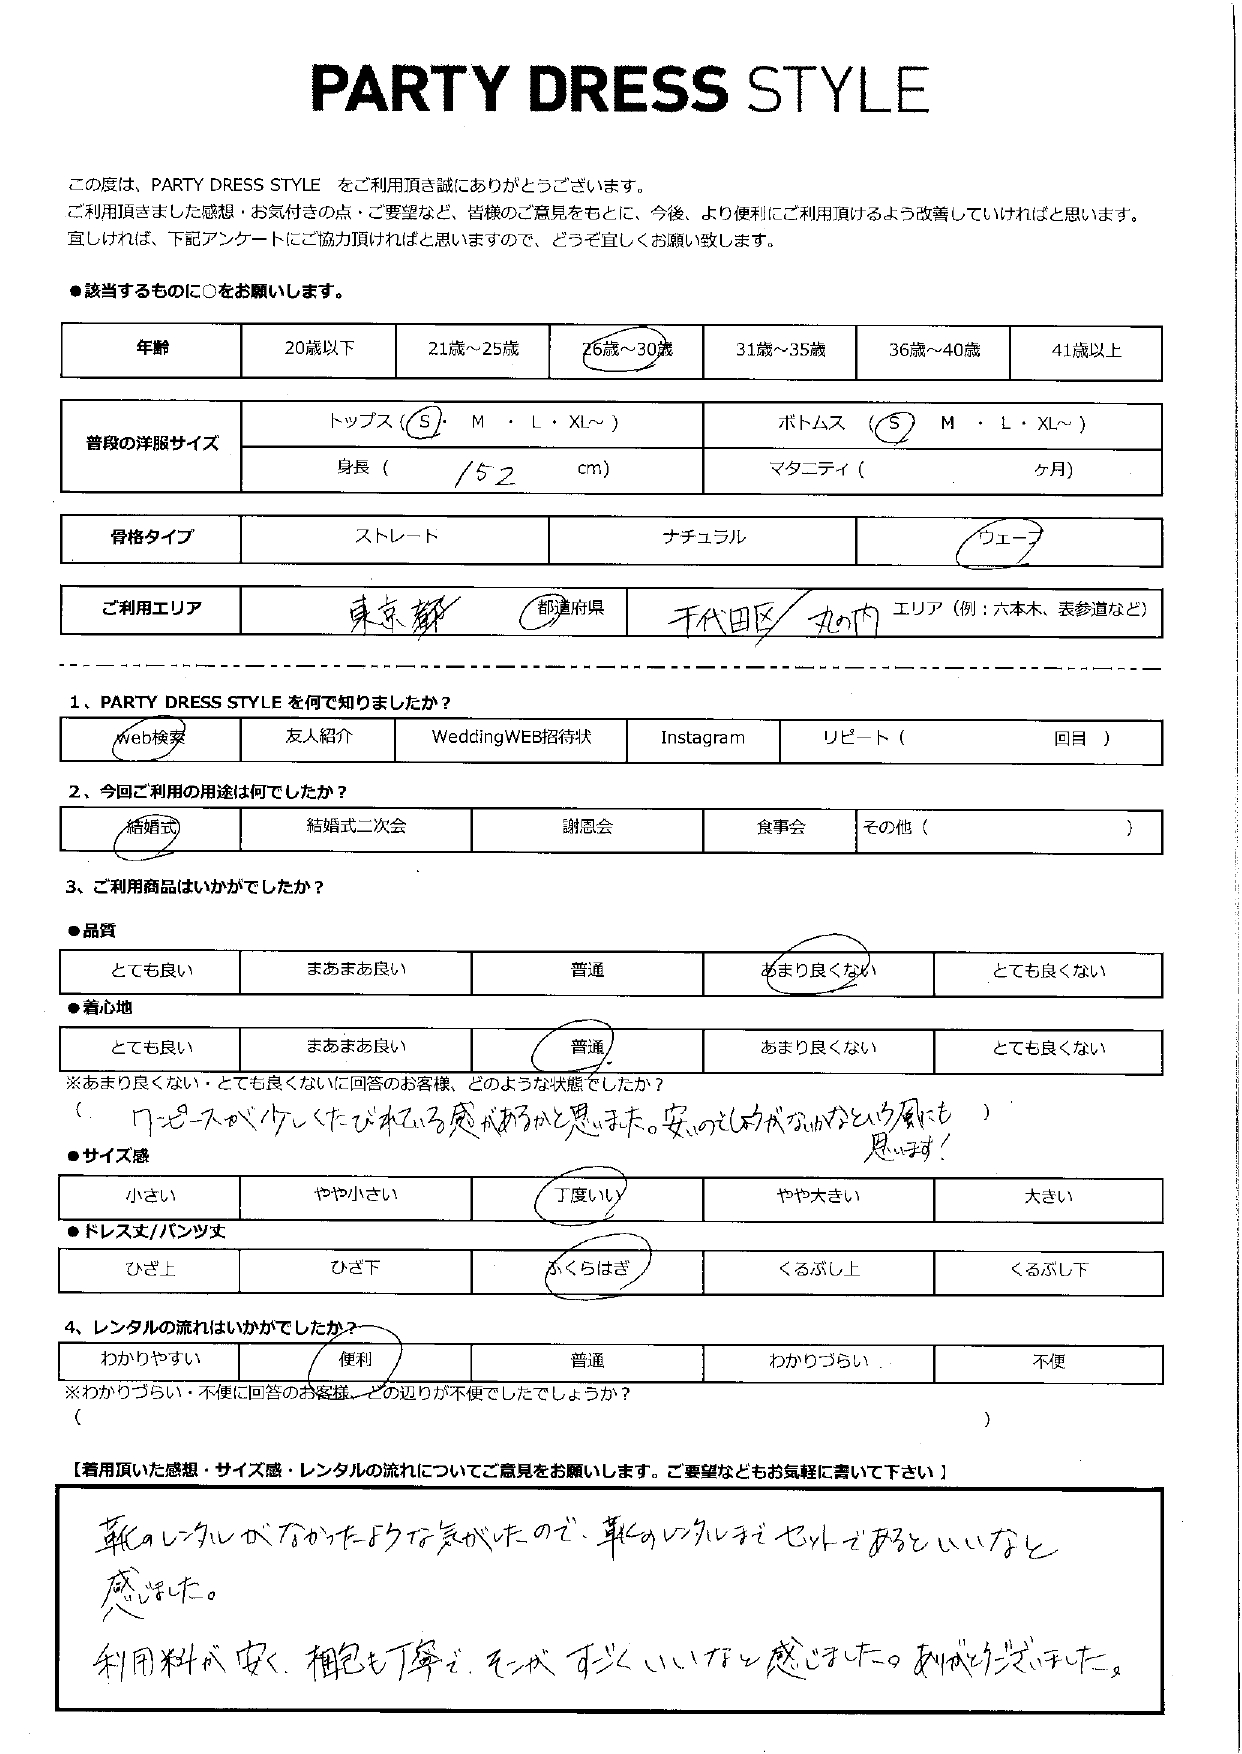 PARTY DRESS STYLE
この度は、PARTY DRESS STYLE をご利用頂き誠にありがとうございます。
ご利用頂きました感想・お気付きの点・ご要望など、皆様のご意見をもとに、今後、より便利にご利用頂けるよう改善していければと思います。
宜しければ、下記アンケートにご協力頂ければと思いますので、どうぞ宜しくお願い致します。
●該当するものに○をお願いします。
年齢 20歳以下 21歳～25歳 26歳～30歳 31歳～35歳 36歳～40歳 41歳以上
普段の洋服サイズ トップス (S・ M ・ L・XL～ ) ボトムス (S) M ・ L・XL～ )
身長 ( 152 cm) マタニティ ( ヶ月)
骨格タイプ ストレート ナチュラル ウェーブ
ご利用エリア 東京都 都道府県 千代田区/丸の内 エリア（例：六本木、表参道など）
1、PARTY DRESS STYLE を何で知りましたか？
Web検索 友人紹介 WeddingWEB招待状 Instagram リピート ( 回目 )
2、今回ご利用の用途は何でしたか？
結婚式 結婚式二次会 謝恩会 食事会 その他 ( )
3、ご利用商品はいかがでしたか？
●品質
とても良い まあまあ良い 普通 あまり良くない とても良くない
●着心地
とても良い まあまあ良い 普通 あまり良くない とても良くない
※あまり良くない・とても良くないに回答のお客様、どのような状態でしたか？
( ワンピースが少しくたびれている感があるかと思いました。安いのでしょうがないかなという風にも )
思います!
●サイズ感
小さい やや小さい 丁度いい やや大きい 大きい
●ドレス丈/パンツ丈
ひざ上 ひざ下 ふくらはぎ くるぶし上 くるぶし下
4、レンタルの流れはいかがでしたか？
わかりやすい 便利 普通 わかりづらい 不便
※わかりづらい・不便に回答のお客様、どの辺りが不便でしたでしょうか？
( )
【着用頂いた感想・サイズ感・レンタルの流れについてご意見をお願いします。ご要望などもお気軽に書いて下さい】
靴のレンタルがなかったような気がしたので、靴のレンタルまでセットであるといいなと
感じました。
利用料が安く、梱包も丁寧で、そこがすごくいいなと感じました。ありがとうございました。